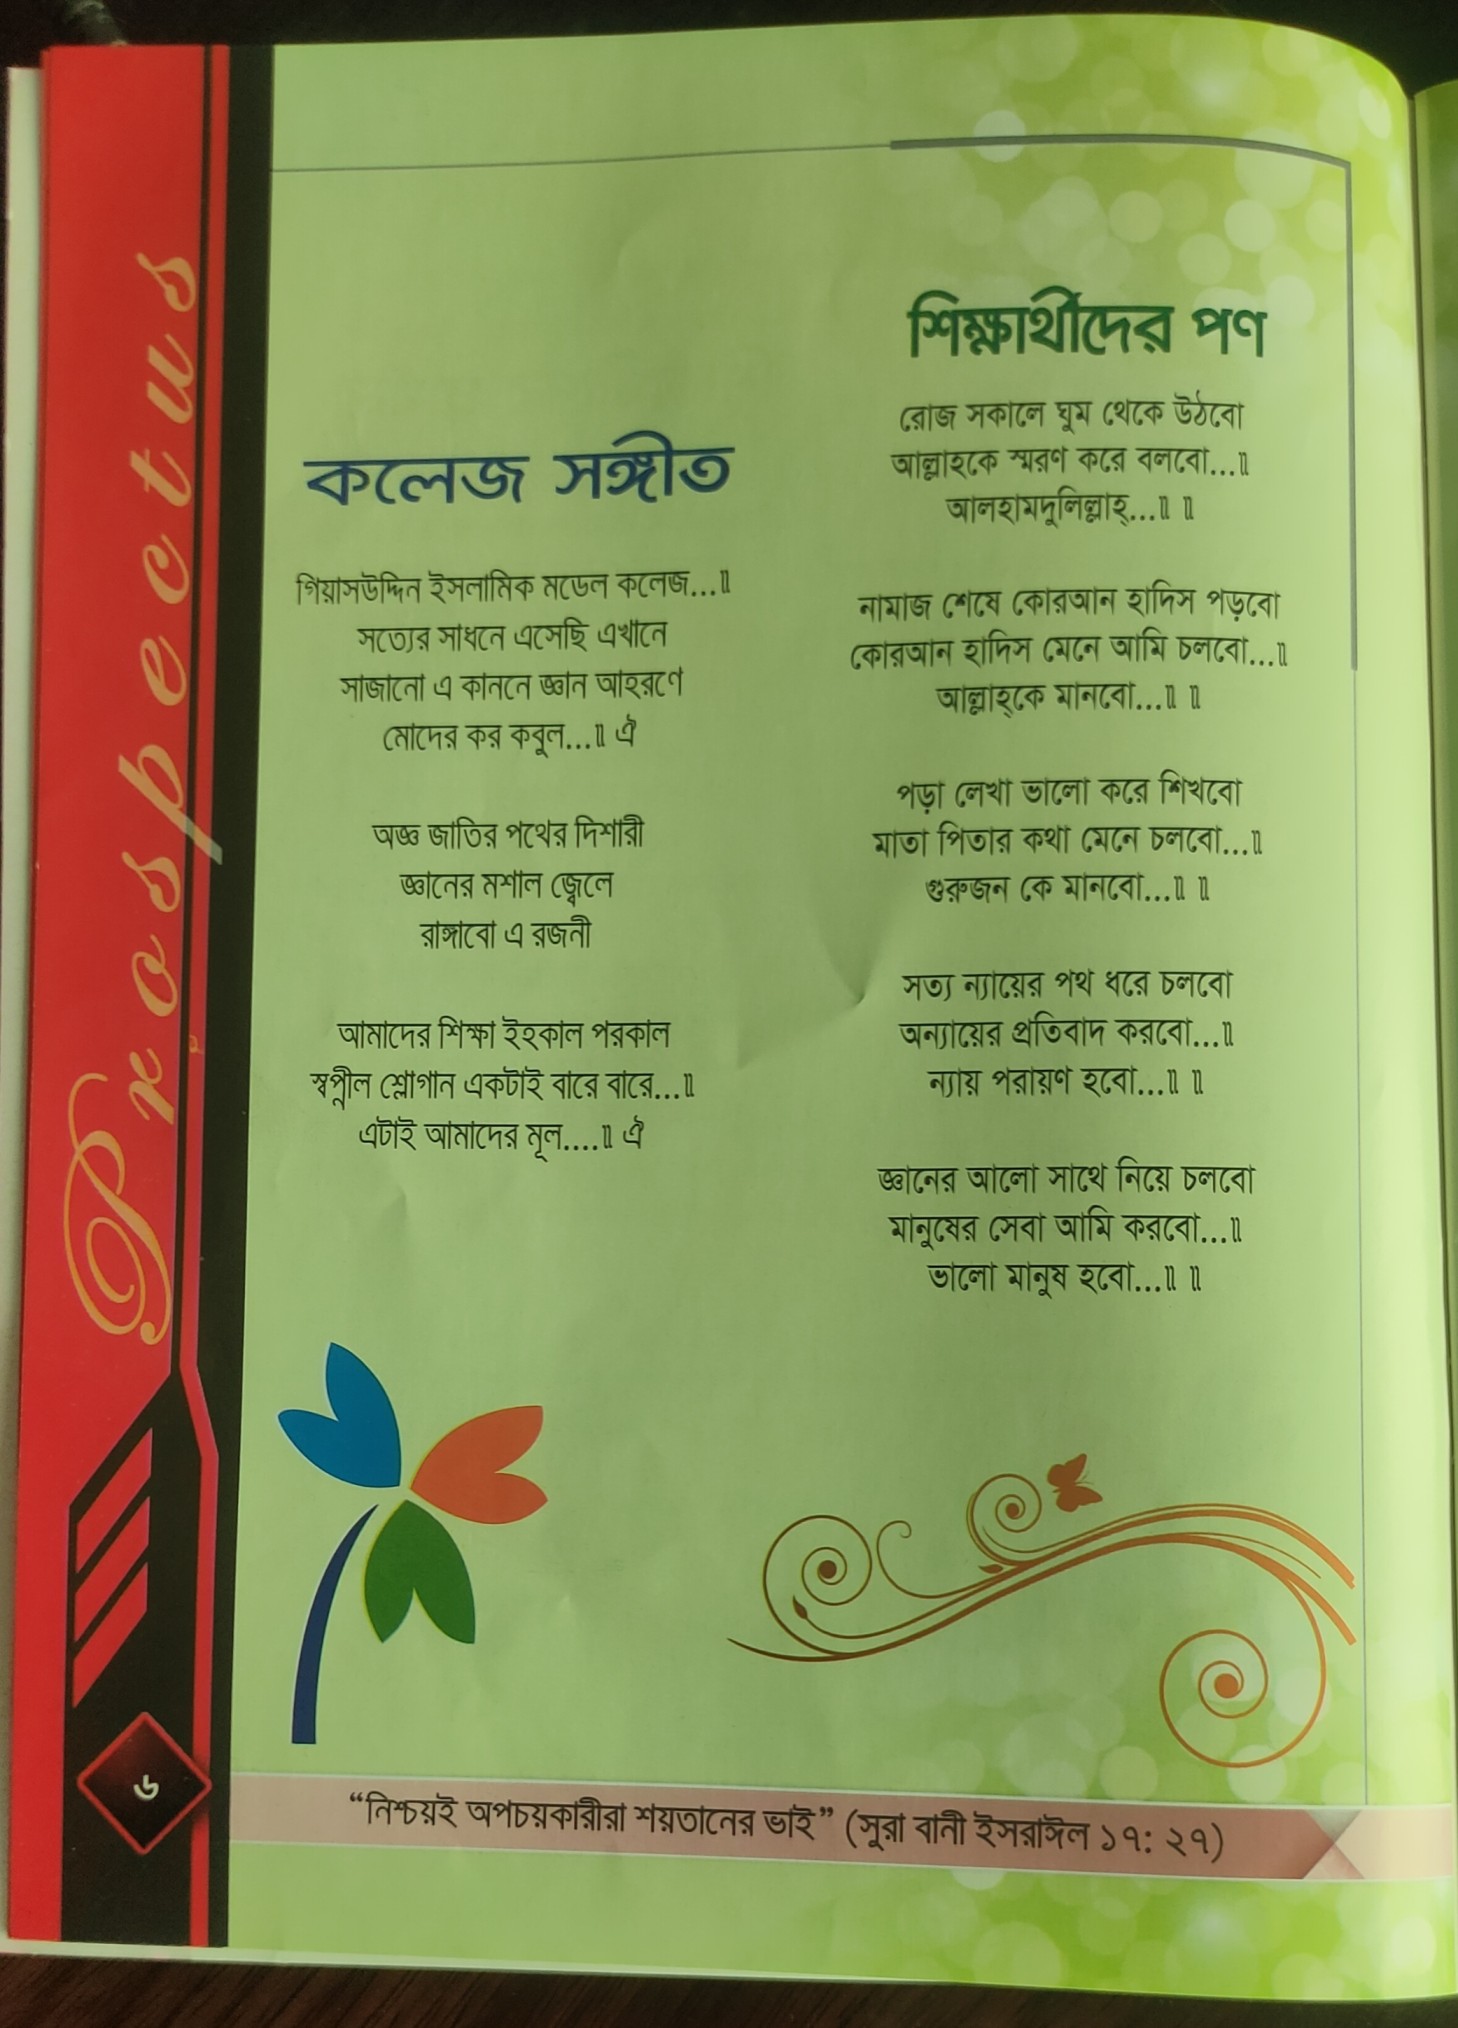 Prospectus
কলেজ সঙ্গীত
গিয়াসউদ্দিন ইসলামিক মডেল কলেজ...॥
সত্যের সাধনে এসেছি এখানে
সাজানো এ কাননে জ্ঞান আহরণে
মোদের কর কবুল...॥ ঐ
অজ্ঞ জাতির পথের দিশারী
জ্ঞানের মশাল জ্বেলে
রাঙ্গাবো এ রজনী
আমাদের শিক্ষা ইহকাল পরকাল
স্বপ্নীল শ্লোগান একটাই বারে বারে...॥
এটাই আমাদের মূল....॥ ঐ
শিক্ষার্থীদের পণ
রোজ সকালে ঘুম থেকে উঠবো
আল্লাহকে স্মরণ করে বলবো...॥
আলহামদুলিল্লাহ্...॥ ॥
নামাজ শেষে কোরআন হাদিস পড়বো
কোরআন হাদিস মেনে আমি চলবো...॥
আল্লাহ্‌কে মানবো...॥ ॥
পড়া লেখা ভালো করে শিখবো
মাতা পিতার কথা মেনে চলবো...॥
গুরুজন কে মানবো...॥ ॥
সত্য ন্যায়ের পথ ধরে চলবো
অন্যায়ের প্রতিবাদ করবো...॥
ন্যায় পরায়ণ হবো...॥ ॥
জ্ঞানের আলো সাথে নিয়ে চলবো
মানুষের সেবা আমি করবো...॥
ভালো মানুষ হবো...॥ ॥
৬
“নিশ্চয়ই অপচয়কারীরা শয়তানের ভাই” (সুরা বানী ইসরাঈল ১৭: ২৭)